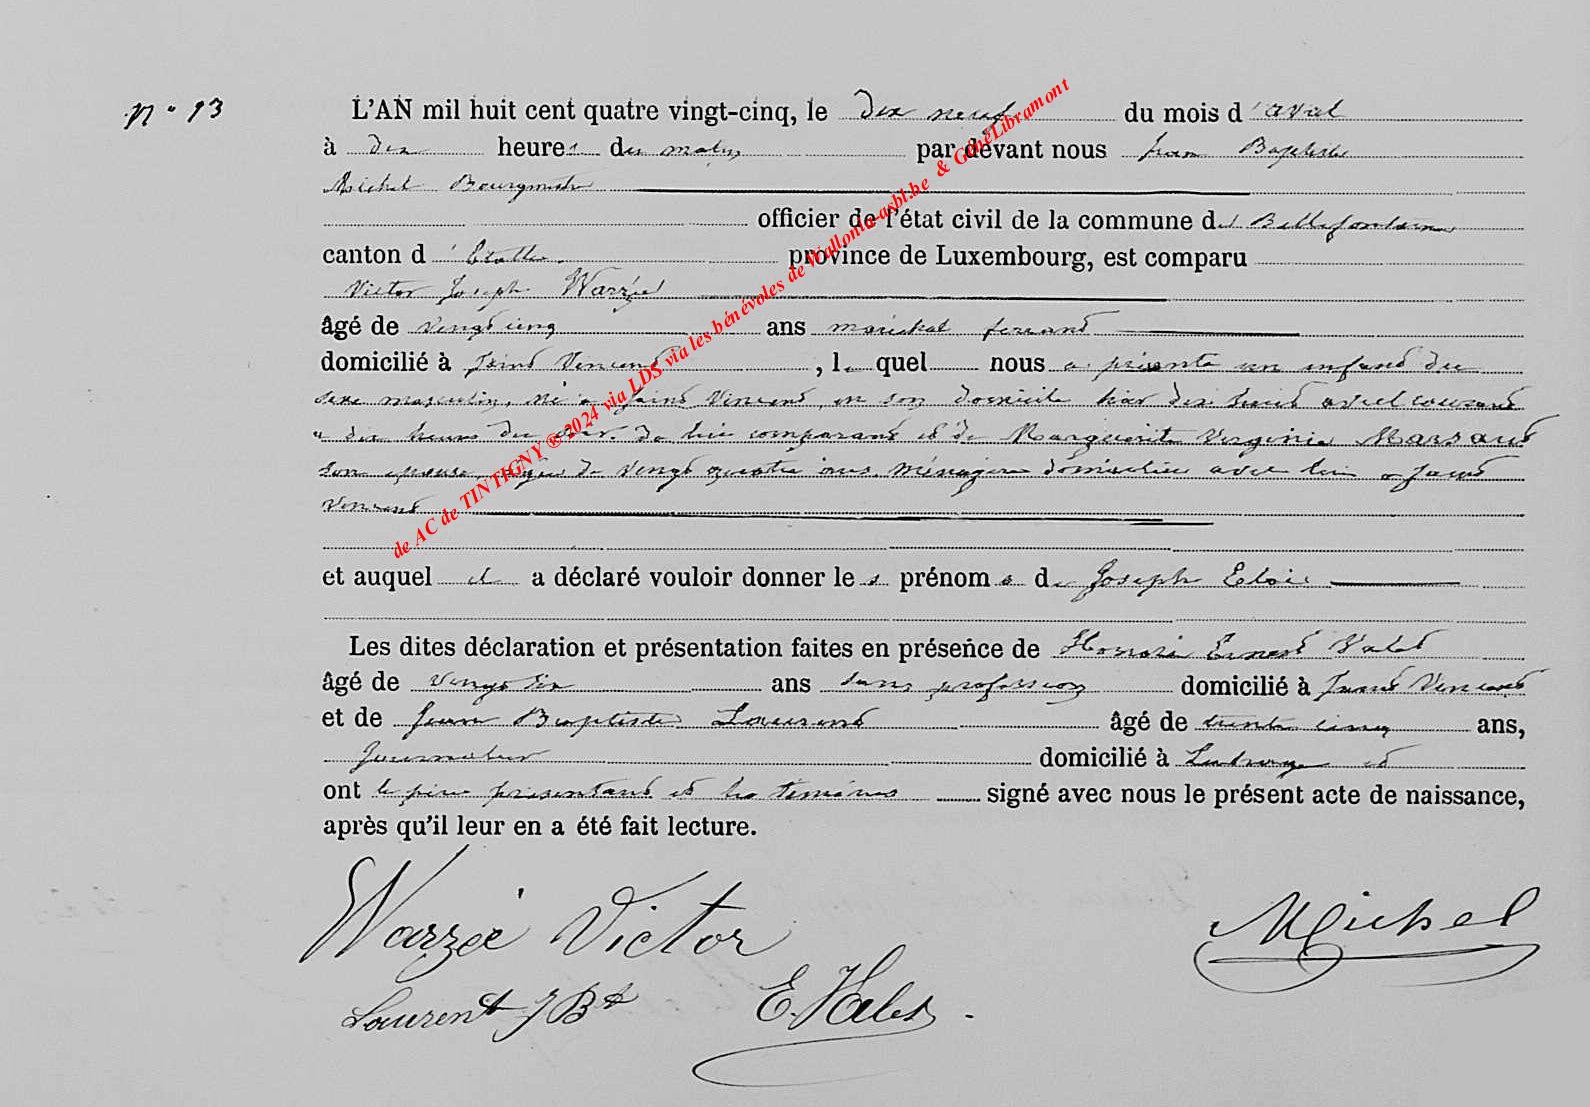 N° 13
L'AN mil huit cent quatre vingt-cinq, le dix neuf du mois d'avril
à dix heures du matin par devant nous Jean Baptiste
Michel Bourgmestre
officier de l'état civil de la commune de Bellefontaine
canton d'Etalle. province de Luxembourg, est comparu
Victor Joseph Warzée
âgé de vingt cinq ans maréchal ferrant
domicilié à Saint Vincent, lequel nous a présenté un enfant du
sexe masculin, né à Saint Vincent, en son domicile hier dix huit avril courant
à dix heures du soir. de lui comparant et de Marguerite Virginie Marsaut
son épouse, agée de vingt quatre ans. Ménagère domiciliée avec lui à Saint
Vincent
et auquel il a déclaré vouloir donner les prénoms de Joseph Eloi
Les dites déclaration et présentation faites en présence de Honoré Ernest Valet
âgé de vingt six ans sans profession domicilié à Saint Vincent
et de Jean Baptiste Laurent âgé de trente cinq ans,
Journalier domicilié à et
ont le père présentant et les témoins signé avec nous le présent acte de naissance,
après qu'il leur en a été fait lecture.
Warzée Victor
Michel
Laurent J Bt
E. Valet.
de AC de TINTIGNY ® 2024 via LDS via les bénévoles de Wallonia-asbl.be & GénéLibramont